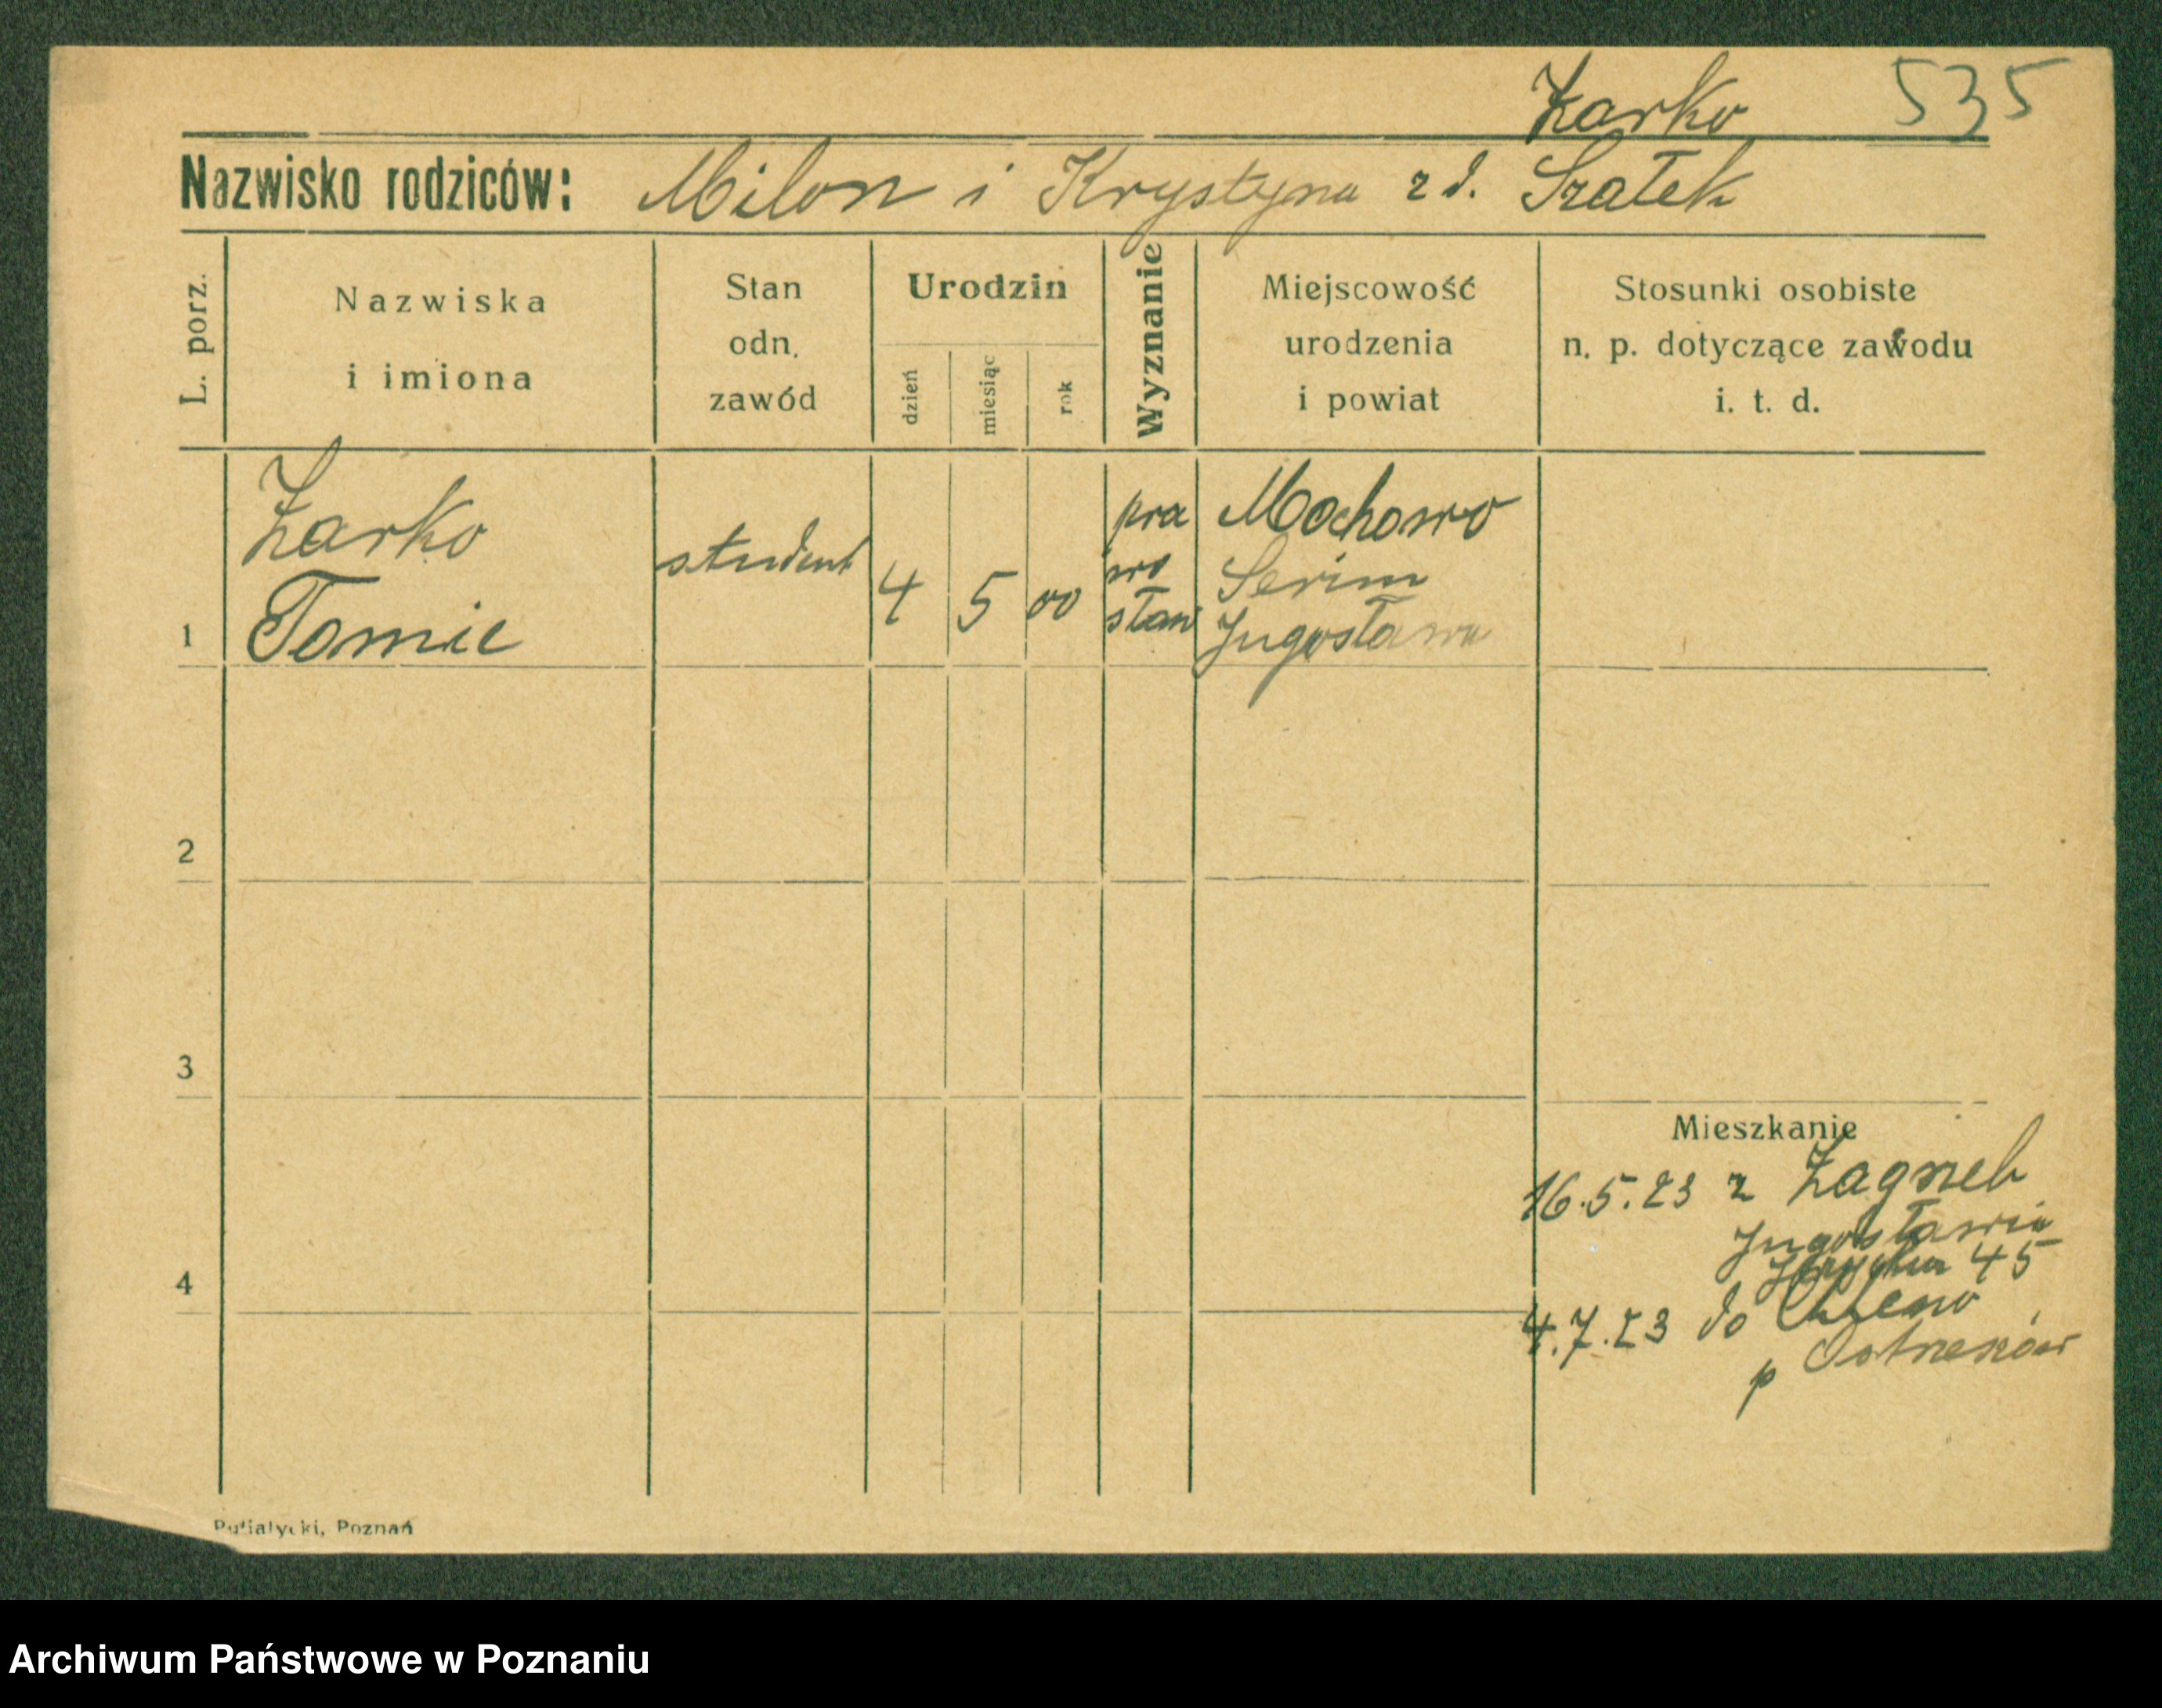 Żarko 535
Nazwisko rodziców: Milon i Krystyna z d. Szałek
L. porz.
Nazwiska
i imiona
Stan
odn.
zawód
Urodzin
dzień
miesiąc
rok
Wyznanie
Miejscowość
urodzenia
i powiat
Stosunki osobiste
n. p. dotyczące zawodu
i. t. d.
1
Żarko
Tomic
student
4 5 00
pra
wo
sław
Mochowo
Serim
Jugosława
2
3
4
Mieszkanie
16.5.23 z Zagrzeb
Jugosławia
45
4.7.23 do
p Ostrzeszów
Putiatycki, Poznań
Archiwum Państwowe w Poznaniu